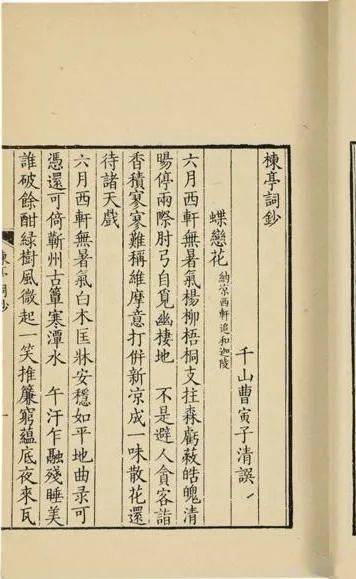 楝亭詞鈔
千山曹寅子清譔
蝶戀花 納涼西軒追和迦陵
六月西軒無暑氣楊柳梧桐支拄森虧蔽皓魄清
暘停兩際肘弓自覓幽棲地 不是避人貪客詣
香積寥寥難稱維摩意打併新凉成一味散花還
待諸天戲
六月西軒無暑氣白木匡牀安穩如平地曲彔可
憑還可倚蘄州古簟寒潭水 午汗乍融殘睡美
誰破餘酣綠樹風微起一笑推簾窮蘊底夜來瓦
楝亭詞鈔
一